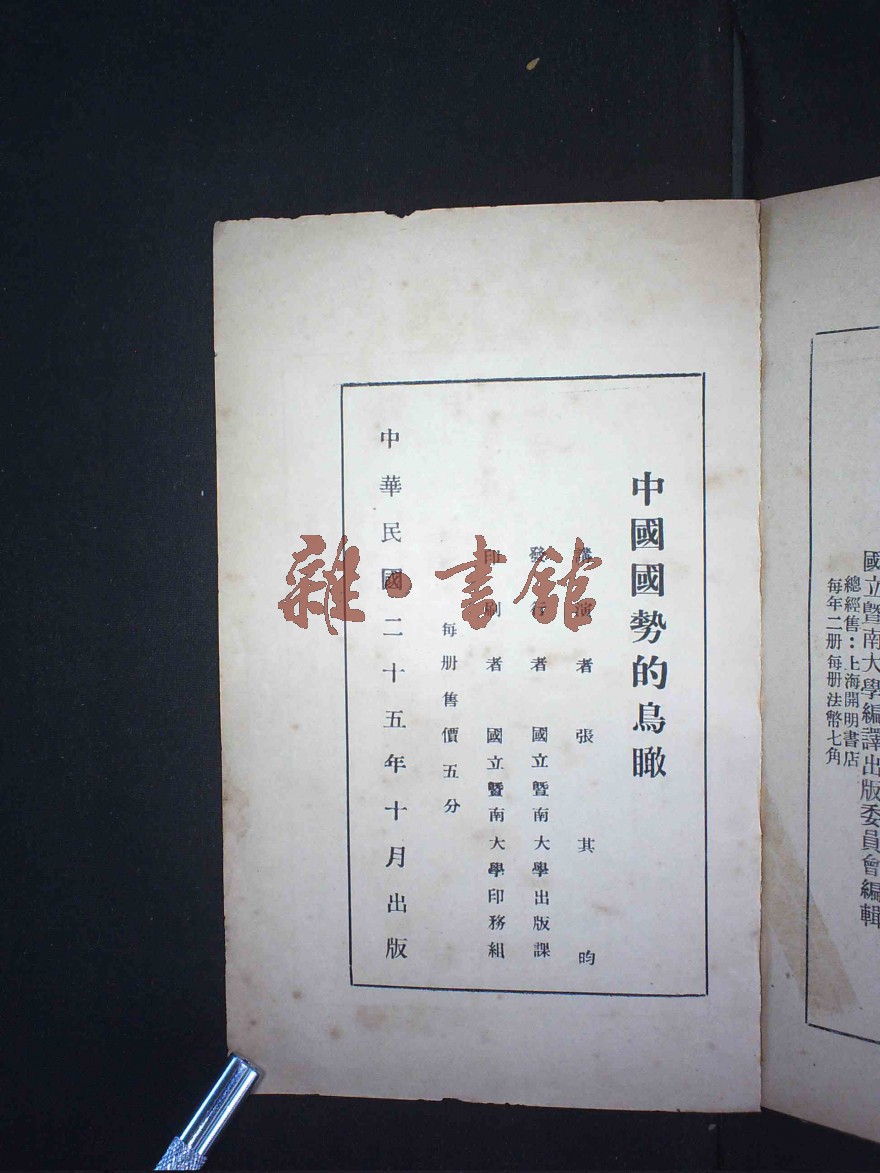 國立暨南大學編譯出版委員會編輯
總經售：上海開明書店
每年二册每册法幣七角
中國國勢的鳥瞰
講演者 張其昀
發行者 國立暨南大學出版課
印刷者 國立暨南大學印務組
每册售價五分
中華民國二十五年十月出版
雜·書館